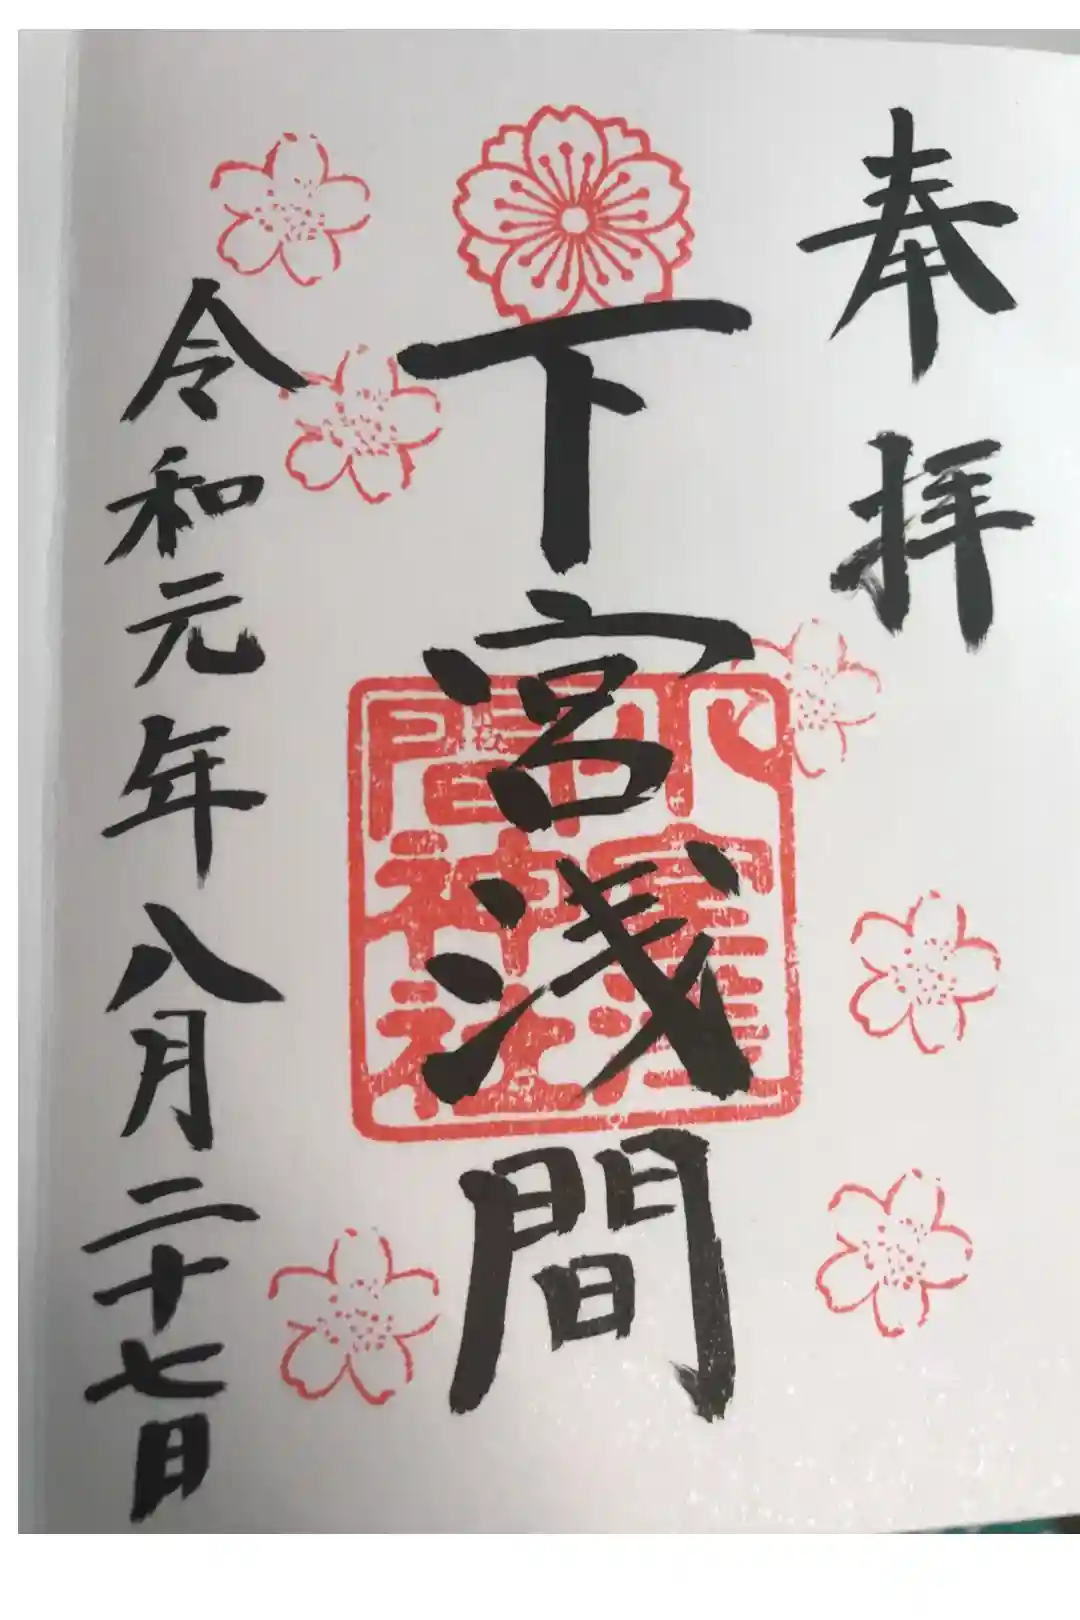 奉拝
下宮浅間
小室浅間神社
令和元年八月二十七日